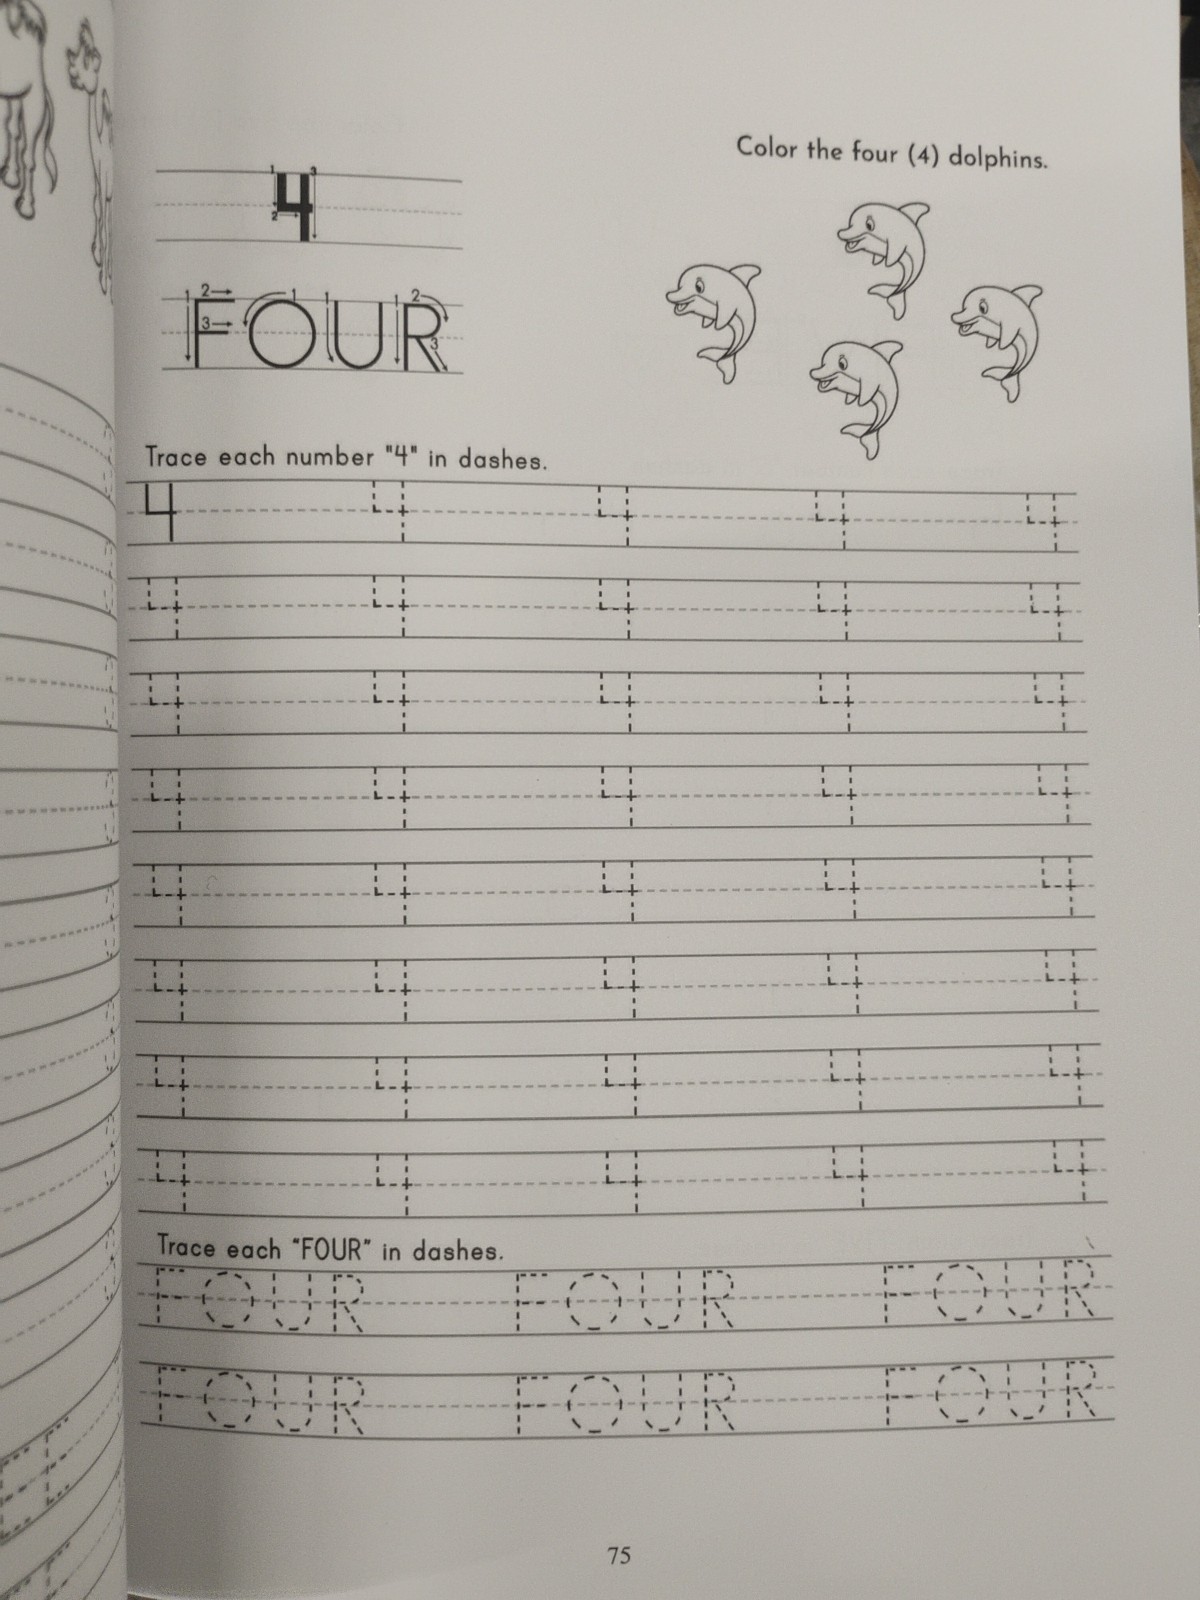 4
FOUR
Color the four (4) dolphins.
Trace each number "4" in dashes.
4 4 4 4 4
4 4 4 4 4
4 4 4 4 4
4 4 4 4 4
4 4 4 4 4
4 4 4 4 4
4 4 4 4 4
4 4 4 4 4
Trace each "FOUR" in dashes.
FOUR FOUR FOUR
FOUR FOUR FOUR
75